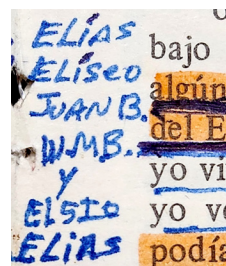 ELíAS
ELíSeo
JUAN B.
W.M.B.
Y
ELSIO
ELiAS
bajo
algún
del E
yo vi
yo ve
podía